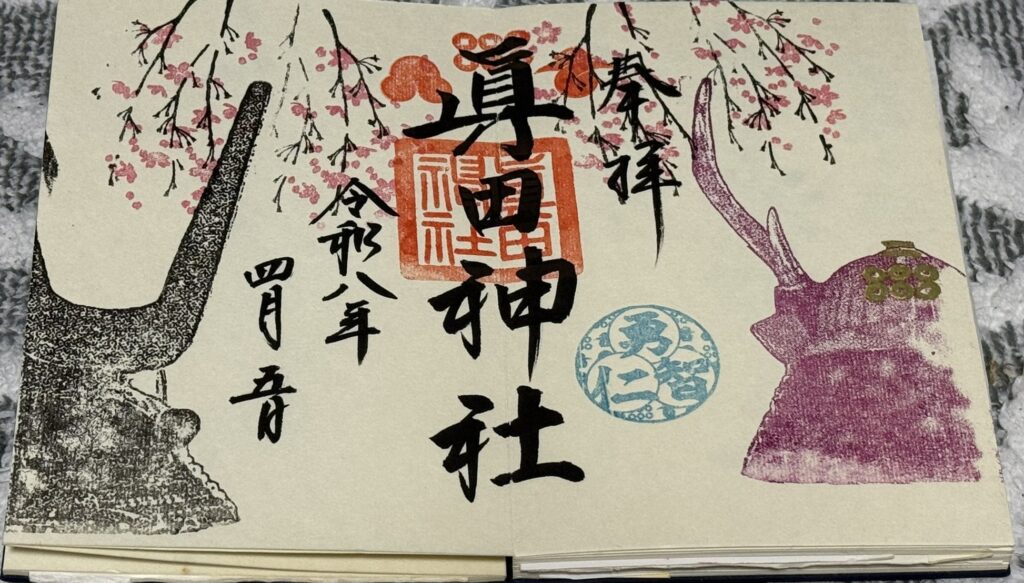 奉拝
眞田神社
眞田
神社
勇
智
仁
令和八年
四月五日